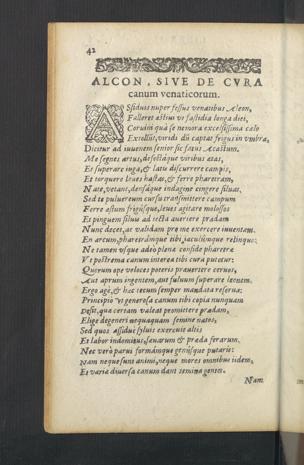 42
ALCON, SIVE DE CVRA
canum venaticorum.
ASsiduis nuper fessus venatibus Acon,
Falleret æstiui vt fastidia longa diei,
Cornua quà se nemora excelsissima cælo
Extollūt, viridi dū captat frigus in vmbra,
Dicitur ad iuuenem senior sic fatus Acastum.
Me segnes artus, defectáque viribus ætas,
Et superare iuga, & latu discurrere campis,
Et torquere leues hastas, & ferre pharetram,
Nate, vetant, densáque indagine cingere siluas,
Sed te puluereum cursu transmittere campum
Ferre æstum frigúsque, leues agitare molossos
Et pinguem siluis ad tecta auertere prædam
Nunc decet, ac validam pro me exercere iuuentam.
En arcum, pharetrámque tibi, iaculúmque relinquo:
Ne tamen vsque adeò plena confide pharetra
Vt postrema canum interea tibi cura putetur:
Quorum ope veloces poteris prauertere ceruos,
Aut aprum ingentem, aut fuluum superare leonem.
Ergo age, & hæc tecum semper mandata reserua;
Principio vt generosa canum tibi copia nunquam
Desit, qua certam valeas promittere prædam,
Elige degeneri nequaquam semine natos,
Sed quos assiduè syluis exercuit altis
Et labor indomitus, sæuarum & præda ferarum.
Nec verò parui formámque genúsque putaris:
Nam neque sunt animi, neque mores omnibus iidem,
Et varia diuersa canum dant semina gentes.
Nam